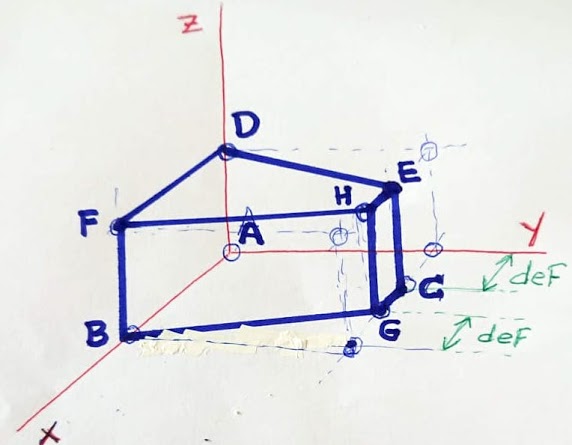 Z
D
E
H
F
A
Y
C
deF
G
B
deF
X